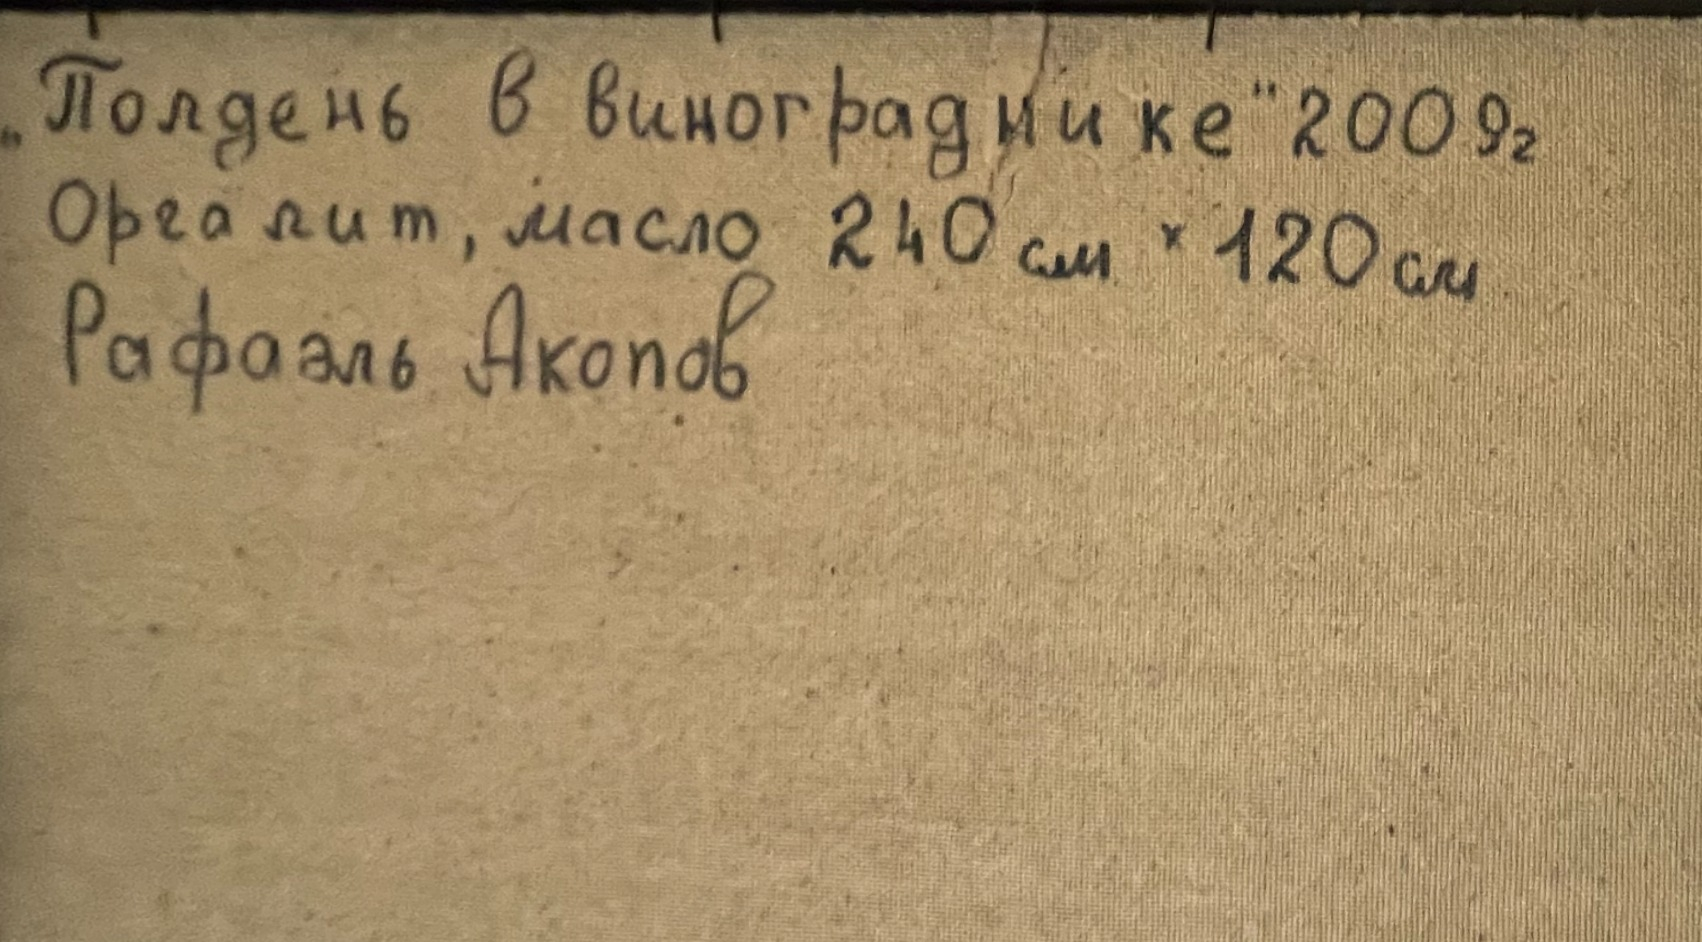 „Полдень в винограднике" 2009г
Оргалит, масло 240 см × 120 см
Рафаэль Акопов